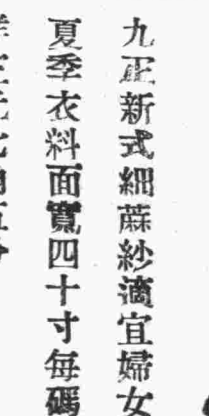 九正新式細蔴紗適宜婦女
夏季衣料面寬四十寸每碼